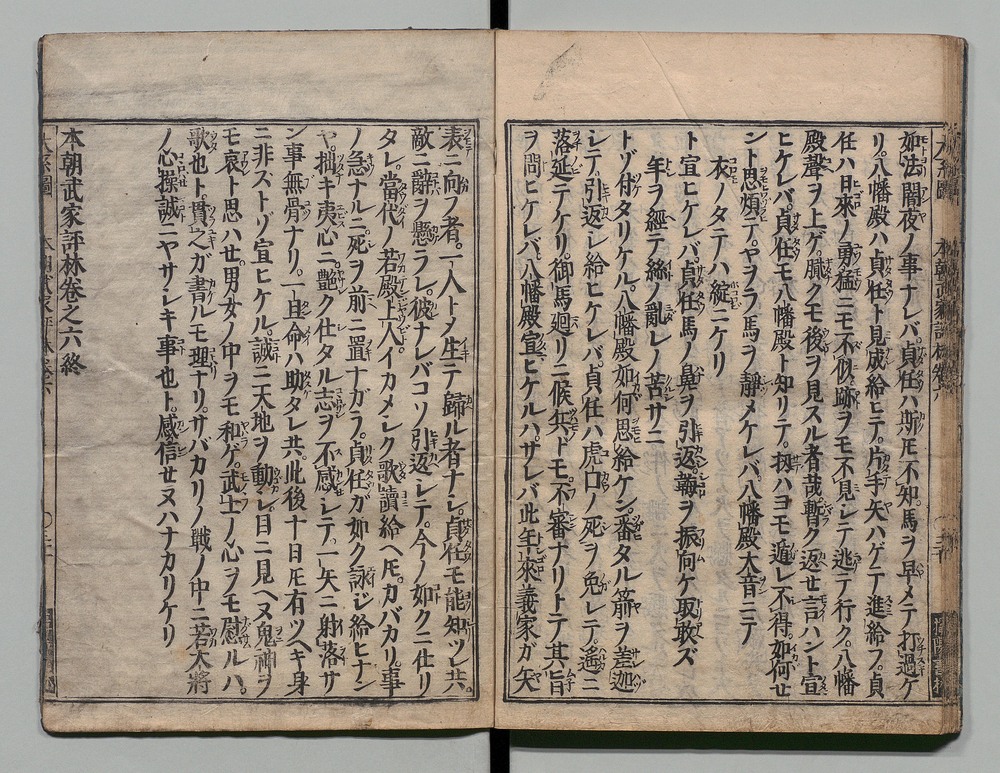 如法闇夜ノ事ナレバ。貞任ハ斯トモ不知馬ヲ早メテ打過ケ
リ。八幡殿ハ貞任ト見成給ヒテ。片手矢ハゲテ進給フ。貞
任ハ日來ノ勇猛ニモ不似。跡ヲモ不見シテ逃テ行ク。八幡
殿聲ヲ上ゲ。膩クモ後ヲ見スル者哉暫ク返セ言ハント宣
ヒケレバ。貞任モ八幡殿ト知リテ。扨ハヨモ遁レ不得。如何セ
ント思煩テ。ヤヲラ馬ヲ靜メケレバ。八幡殿大音ニテ
衣ノタテハ綻ニケリ
ト宣ヒケレバ。貞任馬ノ鼻ヲ引返。鞴ヲ振向ケ取敢ズ
年ヲ經テ絲ノ亂レノ苦サニ
トゾ付タリケル。八幡殿如何思給ケン。番タル箭ヲ差迦
シテ。引返シ給ヒケレバ貞任ハ虎口ノ死ヲ免レテ。遙ニ
落延テケリ。御馬廻リニ候兵ドモ。不審ナリトテ其旨
ヲ問ヒケレバ。八幡殿宣ヒケルハ。サレバ此年來義家ガ矢
表ニ向フ者。一人トメ生テ歸ル者ナシ。貞任モ能知ツレ共。
敵ニ辭ヲ懸ラレ。彼ナレバコソ引返シテ。今ノ如クニ仕リ
タレ。當代ノ若殿上人。イカメシク歌讀給ヘ𪜈。カバカリ。事
ノ急ナルニ死ヲ前ニ置ナガラ。貞任ガ如ク詠ジ給ヒナン
ヤ。拙キ夷心ニ艶ク仕タル志ヲ不感シテ。一矢ニ射落サ
ン事無骨ナリ。一旦命ハ助タレ共。此後十日𪜈有ツベキ身
ニ非ズトゾ宣ヒケル。誠ニ天地ヲ動シ。目ニ見ヘヌ鬼神ヲ
モ哀ト思ハセ。男女ノ中ヲモ和ゲ。武士ノ心ヲモ慰ルハ。
歌也ト。貫之ガ書ルモ理ナリ。サバカリノ戰ノ中ニ。若大將
ノ心操誠ニヤサシキ事也ト。感信セヌハナカリケリ
本朝武家評林卷之六終